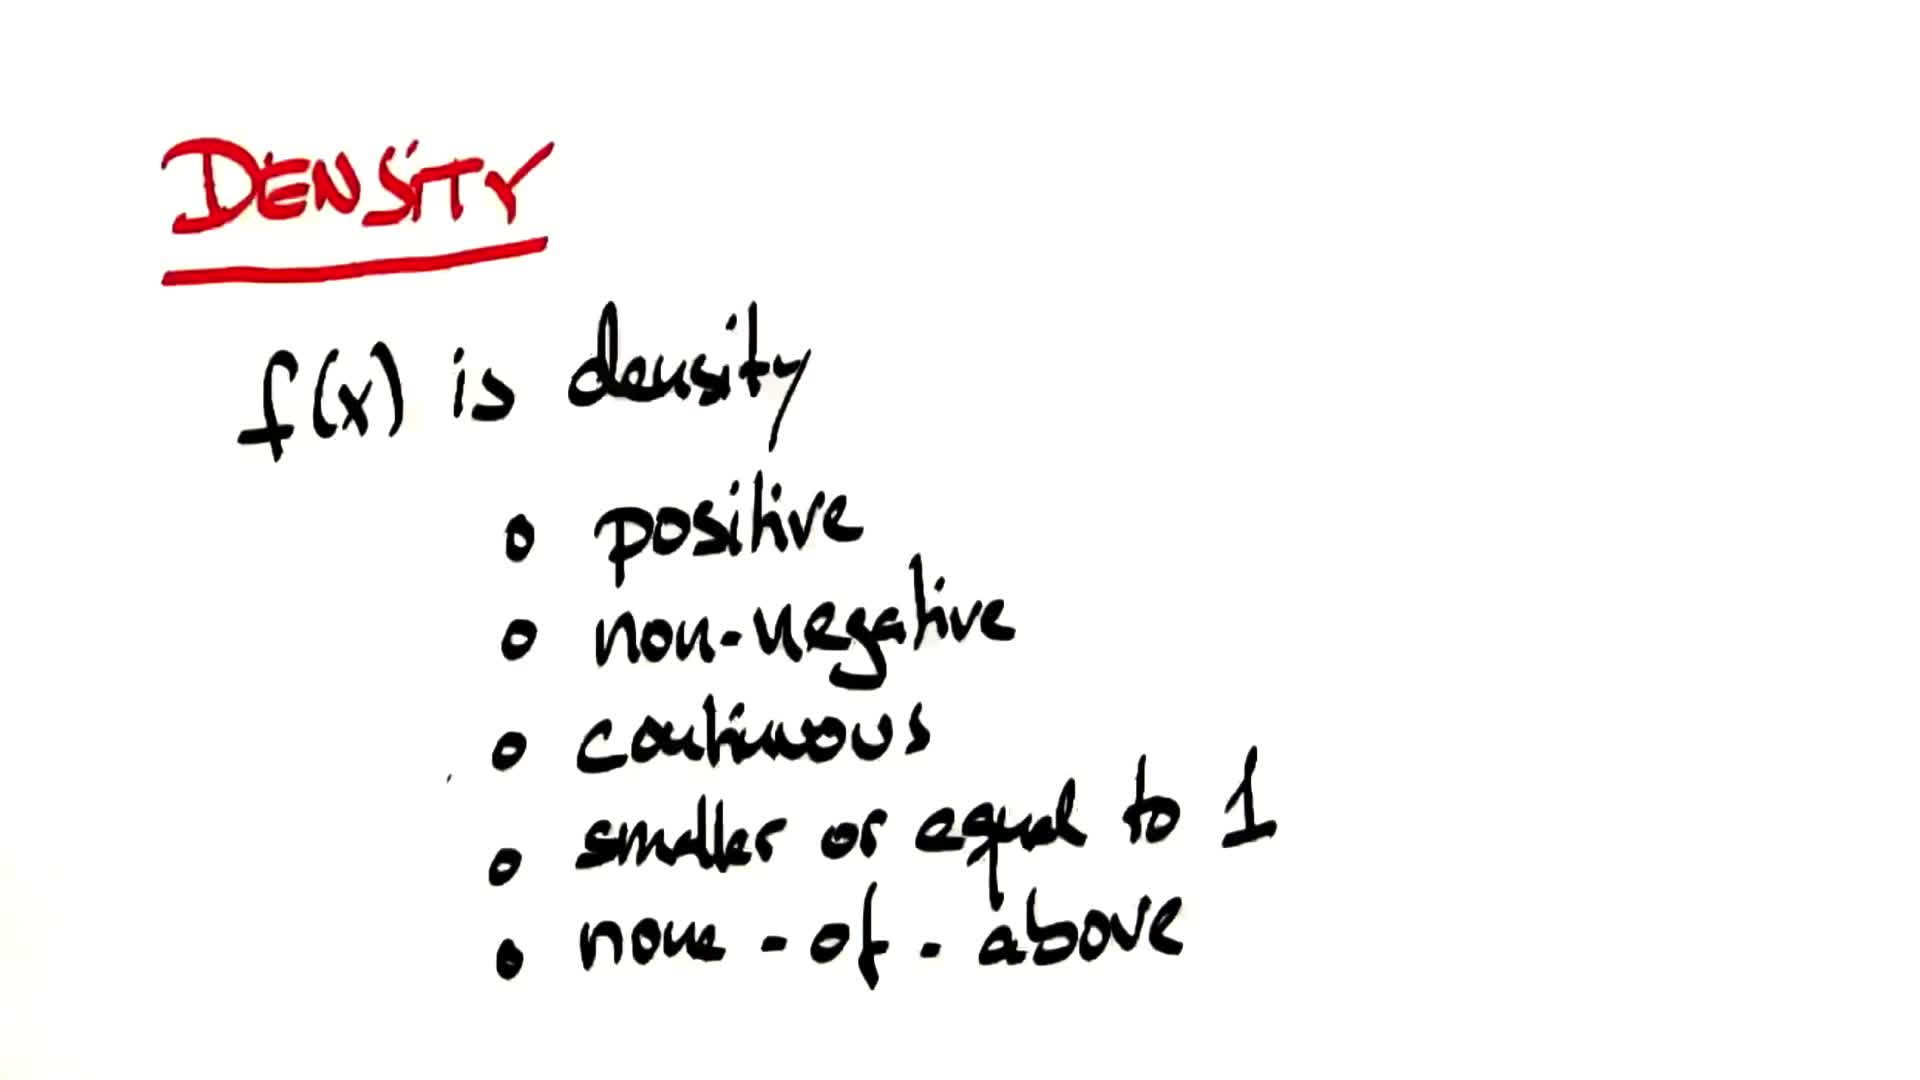 DENSITY
f(x) is density
o positive
o non-negative
o continuous
o smaller or equal to 1
o none-of-above